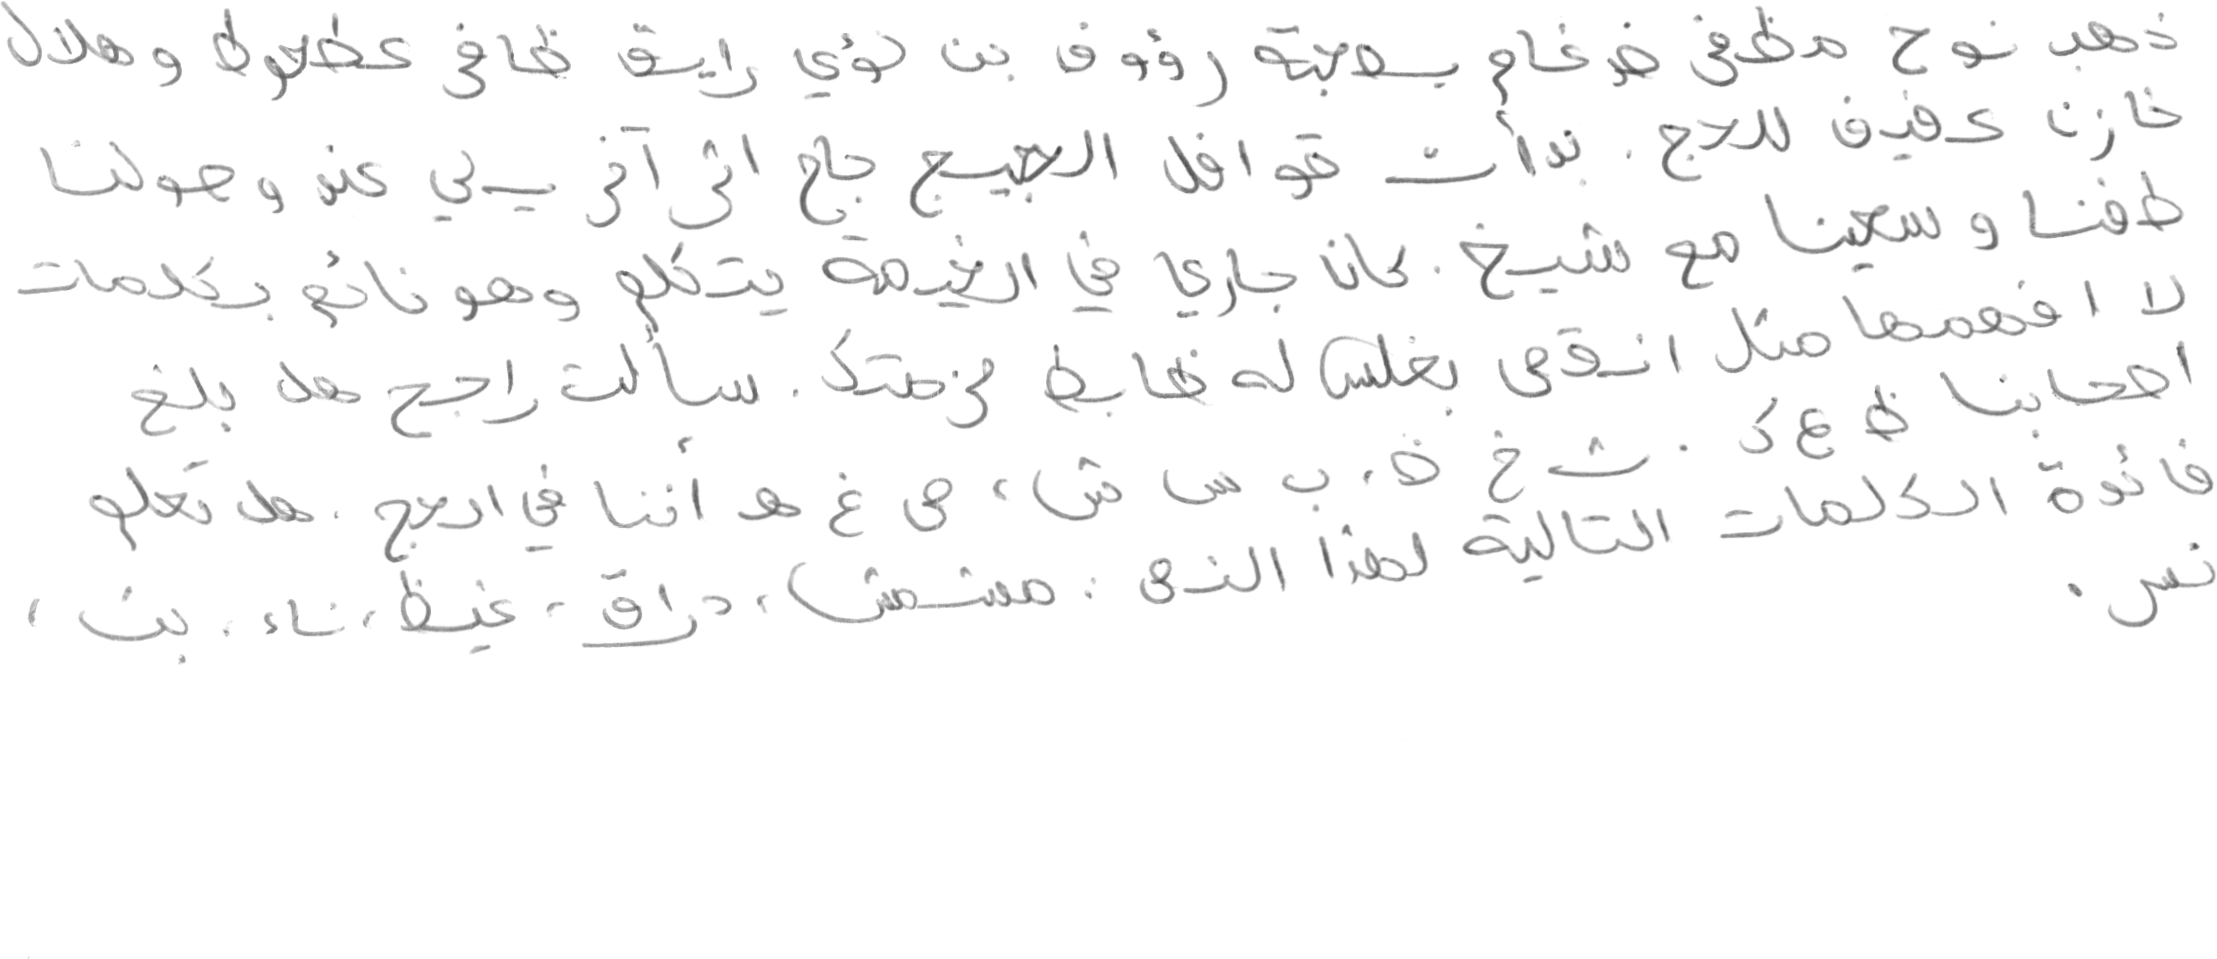 ذهب نوح مظفر ضرغام بصحبة رؤوف بن لؤي رايق ظافر عطعوط وهلال
خازن عفيف للحج. بدأت قوافل الحجيج حاج اثر آخر يبلي عند وصولنا
طفنا وسعينا مع شيخ. كان جاري في الخيمة يتكلم وهو نائم بكلمات
لا افهمها مثل انقص بغلس له ظابط خمتك. سألت راجح هل بلغ
اصحابنا ظ ع ك. ث خ ض، ب س ش، ص غ هـ أننا في الحج. هل تعلم
فائدة الكلمات التالية لهذا النص: مشمش، دراق، غيظ، ناء، بث،
نس.